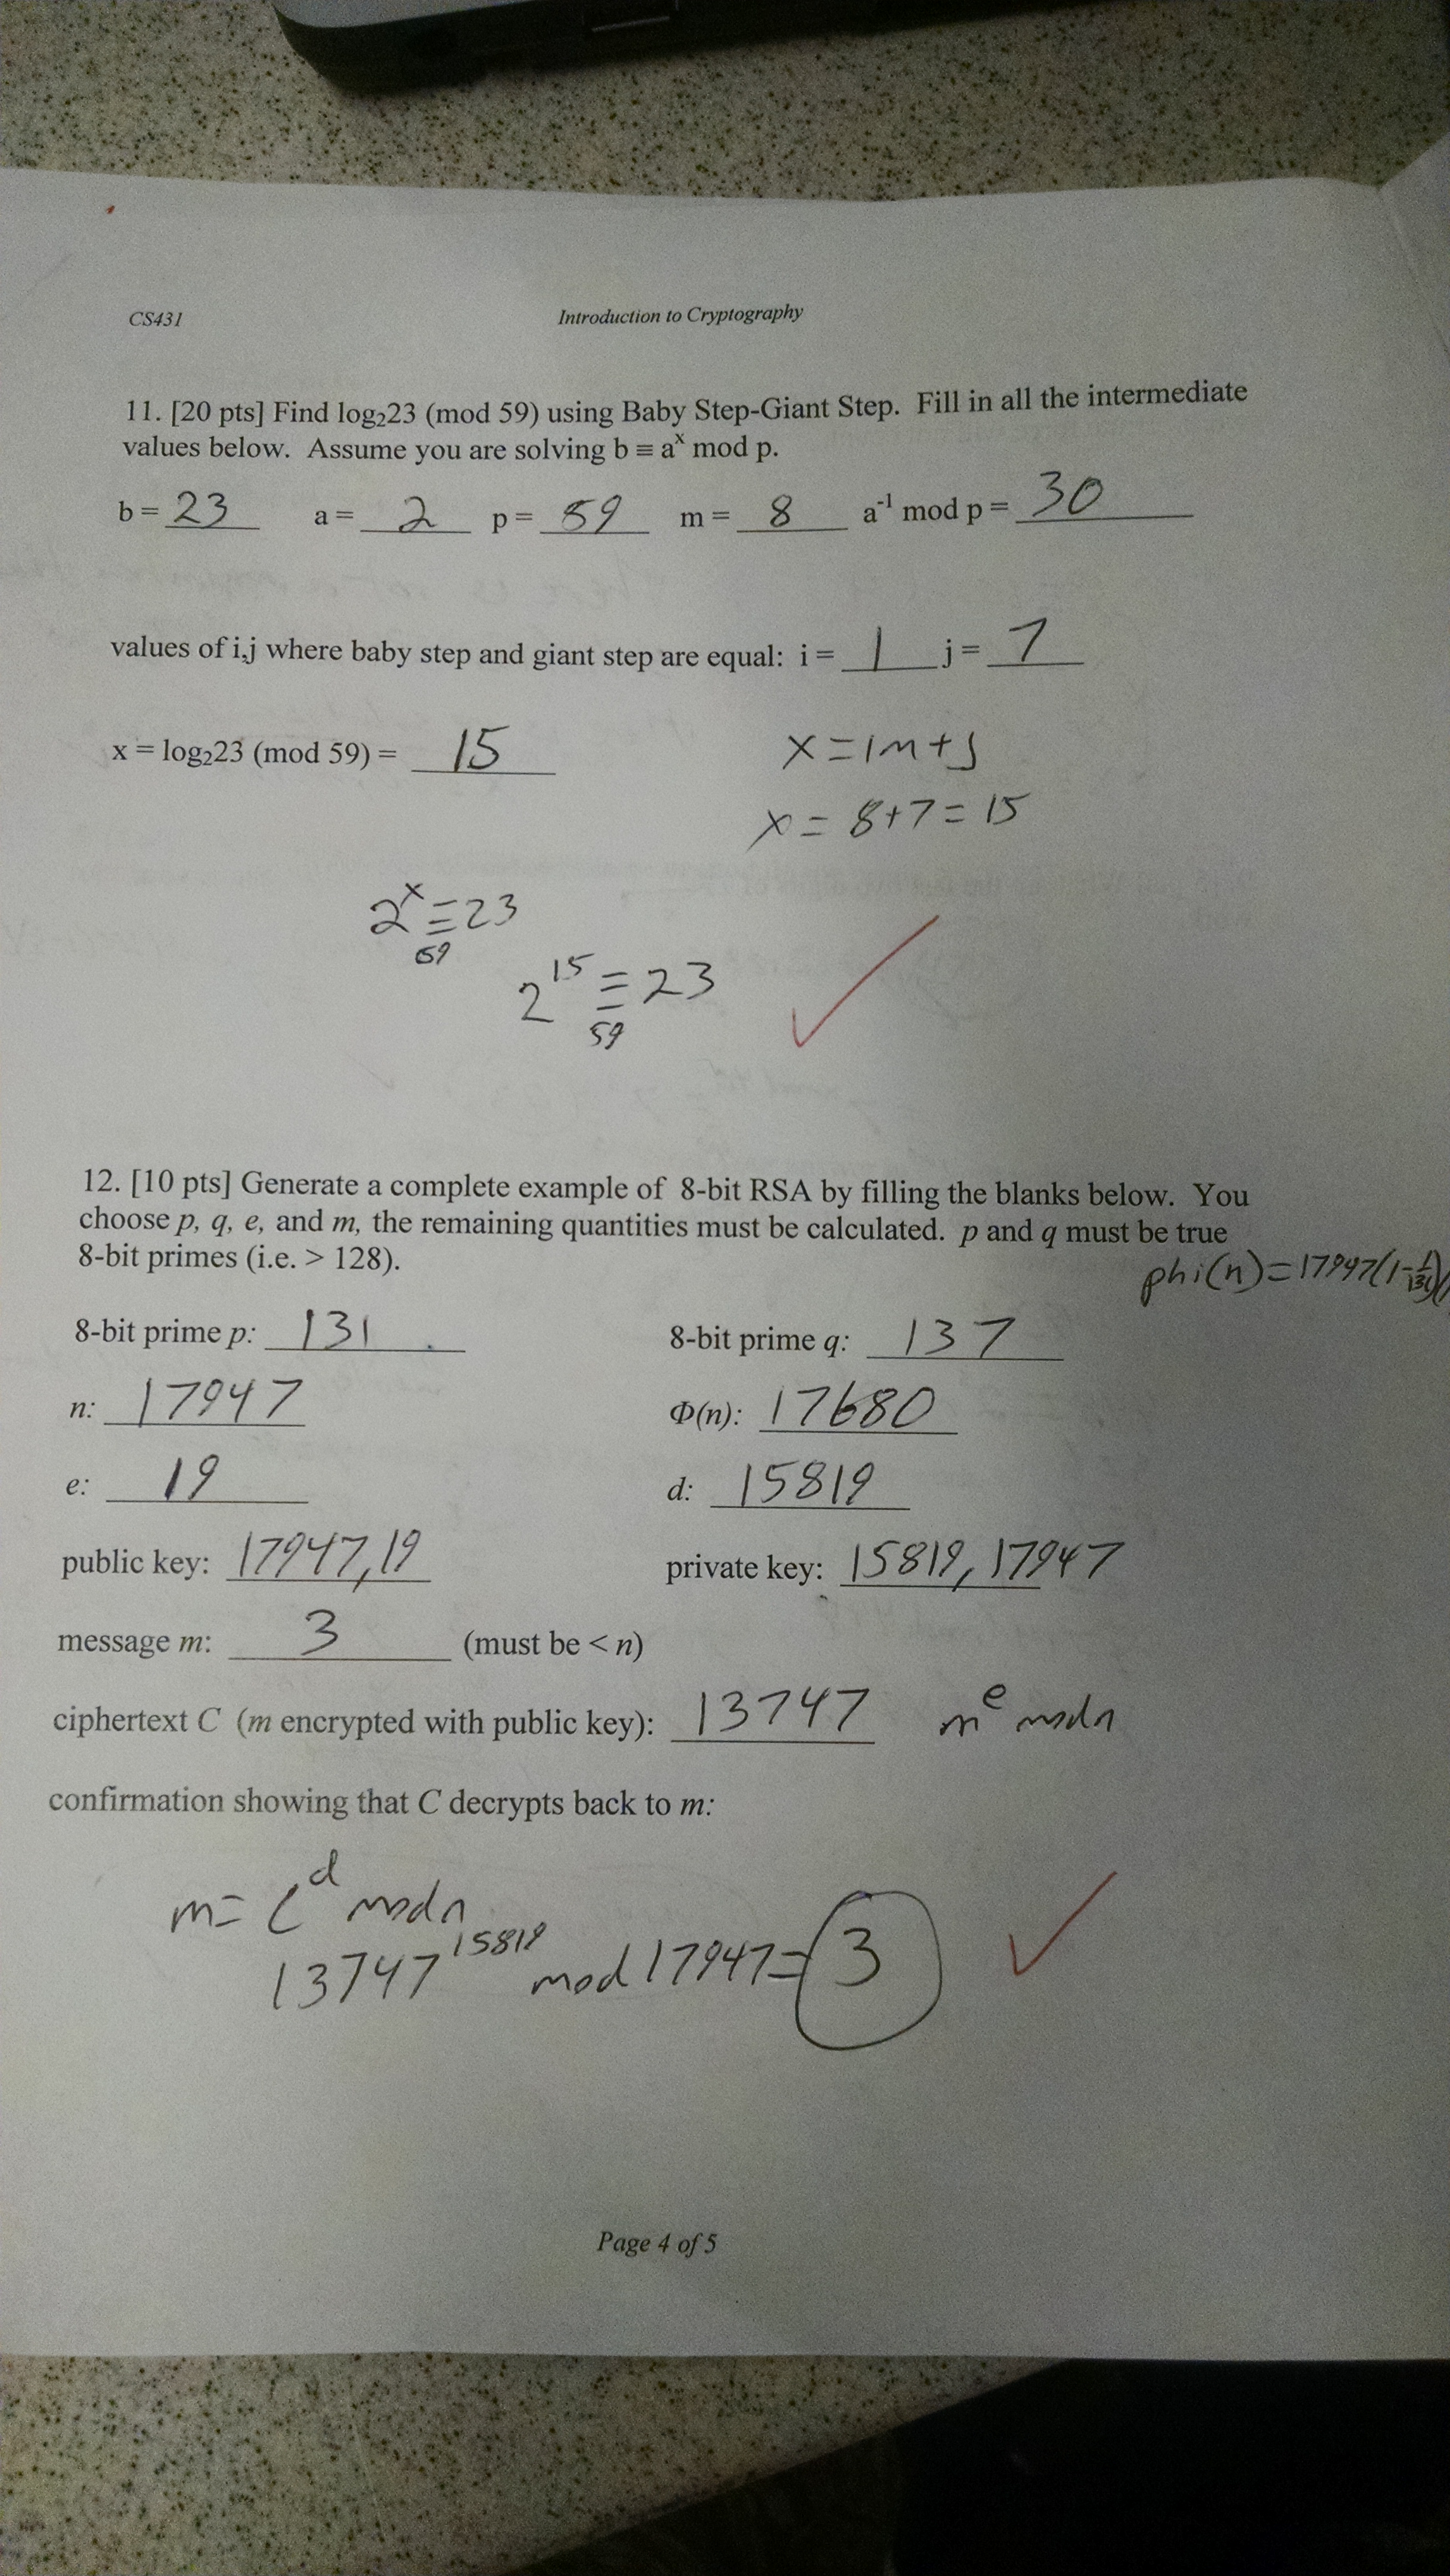 CS431 Introduction to Cryptography
11. [20 pts] Find log₂23 (mod 59) using Baby Step-Giant Step. Fill in all the intermediate
values below. Assume you are solving b ≡ aˣ mod p.
b = 23 a = 2 p = 59 m = 8 a⁻¹ mod p = 30
values of i,j where baby step and giant step are equal: i = 1 j = 7
x = log₂23 (mod 59) = 15
x = im + j
x = 8+7 = 15
2ˣ ≡ 23
59
2¹⁵ ≡ 23
59
12. [10 pts] Generate a complete example of 8-bit RSA by filling the blanks below. You
choose p, q, e, and m, the remaining quantities must be calculated. p and q must be true
8-bit primes (i.e. > 128).
phi(n) = 17947(1-1/131)
8-bit prime p: 131 8-bit prime q: 137
n: 17947 Φ(n): 17680
e: 19 d: 15819
public key: 17947,19 private key: 15819, 17947
message m: 3 (must be < n)
ciphertext C (m encrypted with public key): 13747 mᵉ mod n
confirmation showing that C decrypts back to m:
m = Cᵈ mod n
13747¹⁵⁸¹⁹ mod 17947 = 3
Page 4 of 5